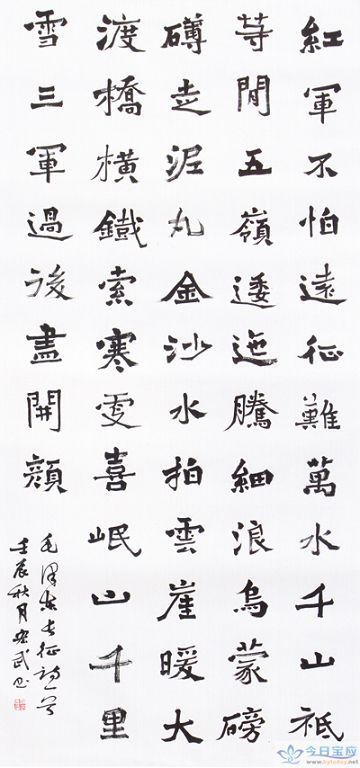 紅軍不怕遠征難萬水千山祗
等閒五嶺逶迤騰細浪烏蒙磅
礴走泥丸金沙水拍雲崖暖大
渡橋橫鐵索寒更喜岷山千里
雪三軍過後盡開顏
毛澤東長征詩一首
壬辰秋月武书
今日宝应
www.bytoday.net